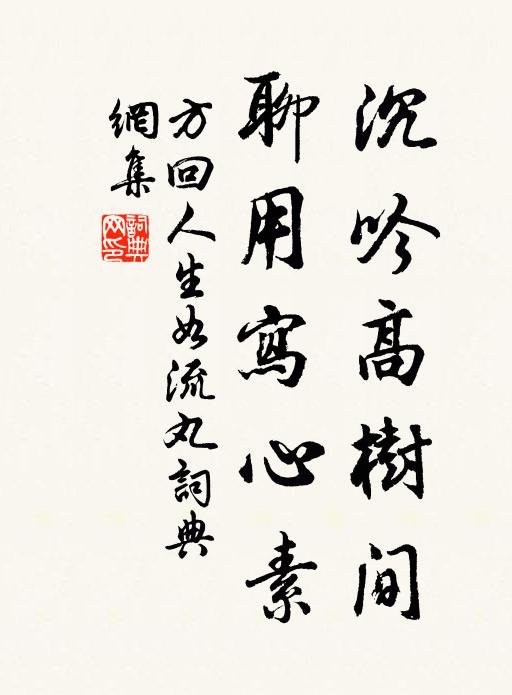 沉吟高樹间
聊用寫心素
方回人生如流丸詞典
網集
詞典网印